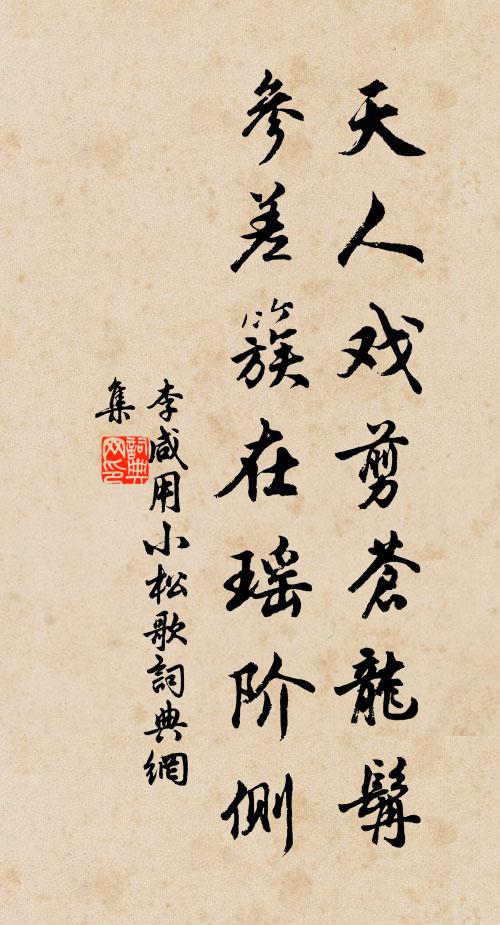 天人戏剪苍龍髯
参差簇在瑶阶侧
李咸用小松歌詞典網
集
詞典
网印